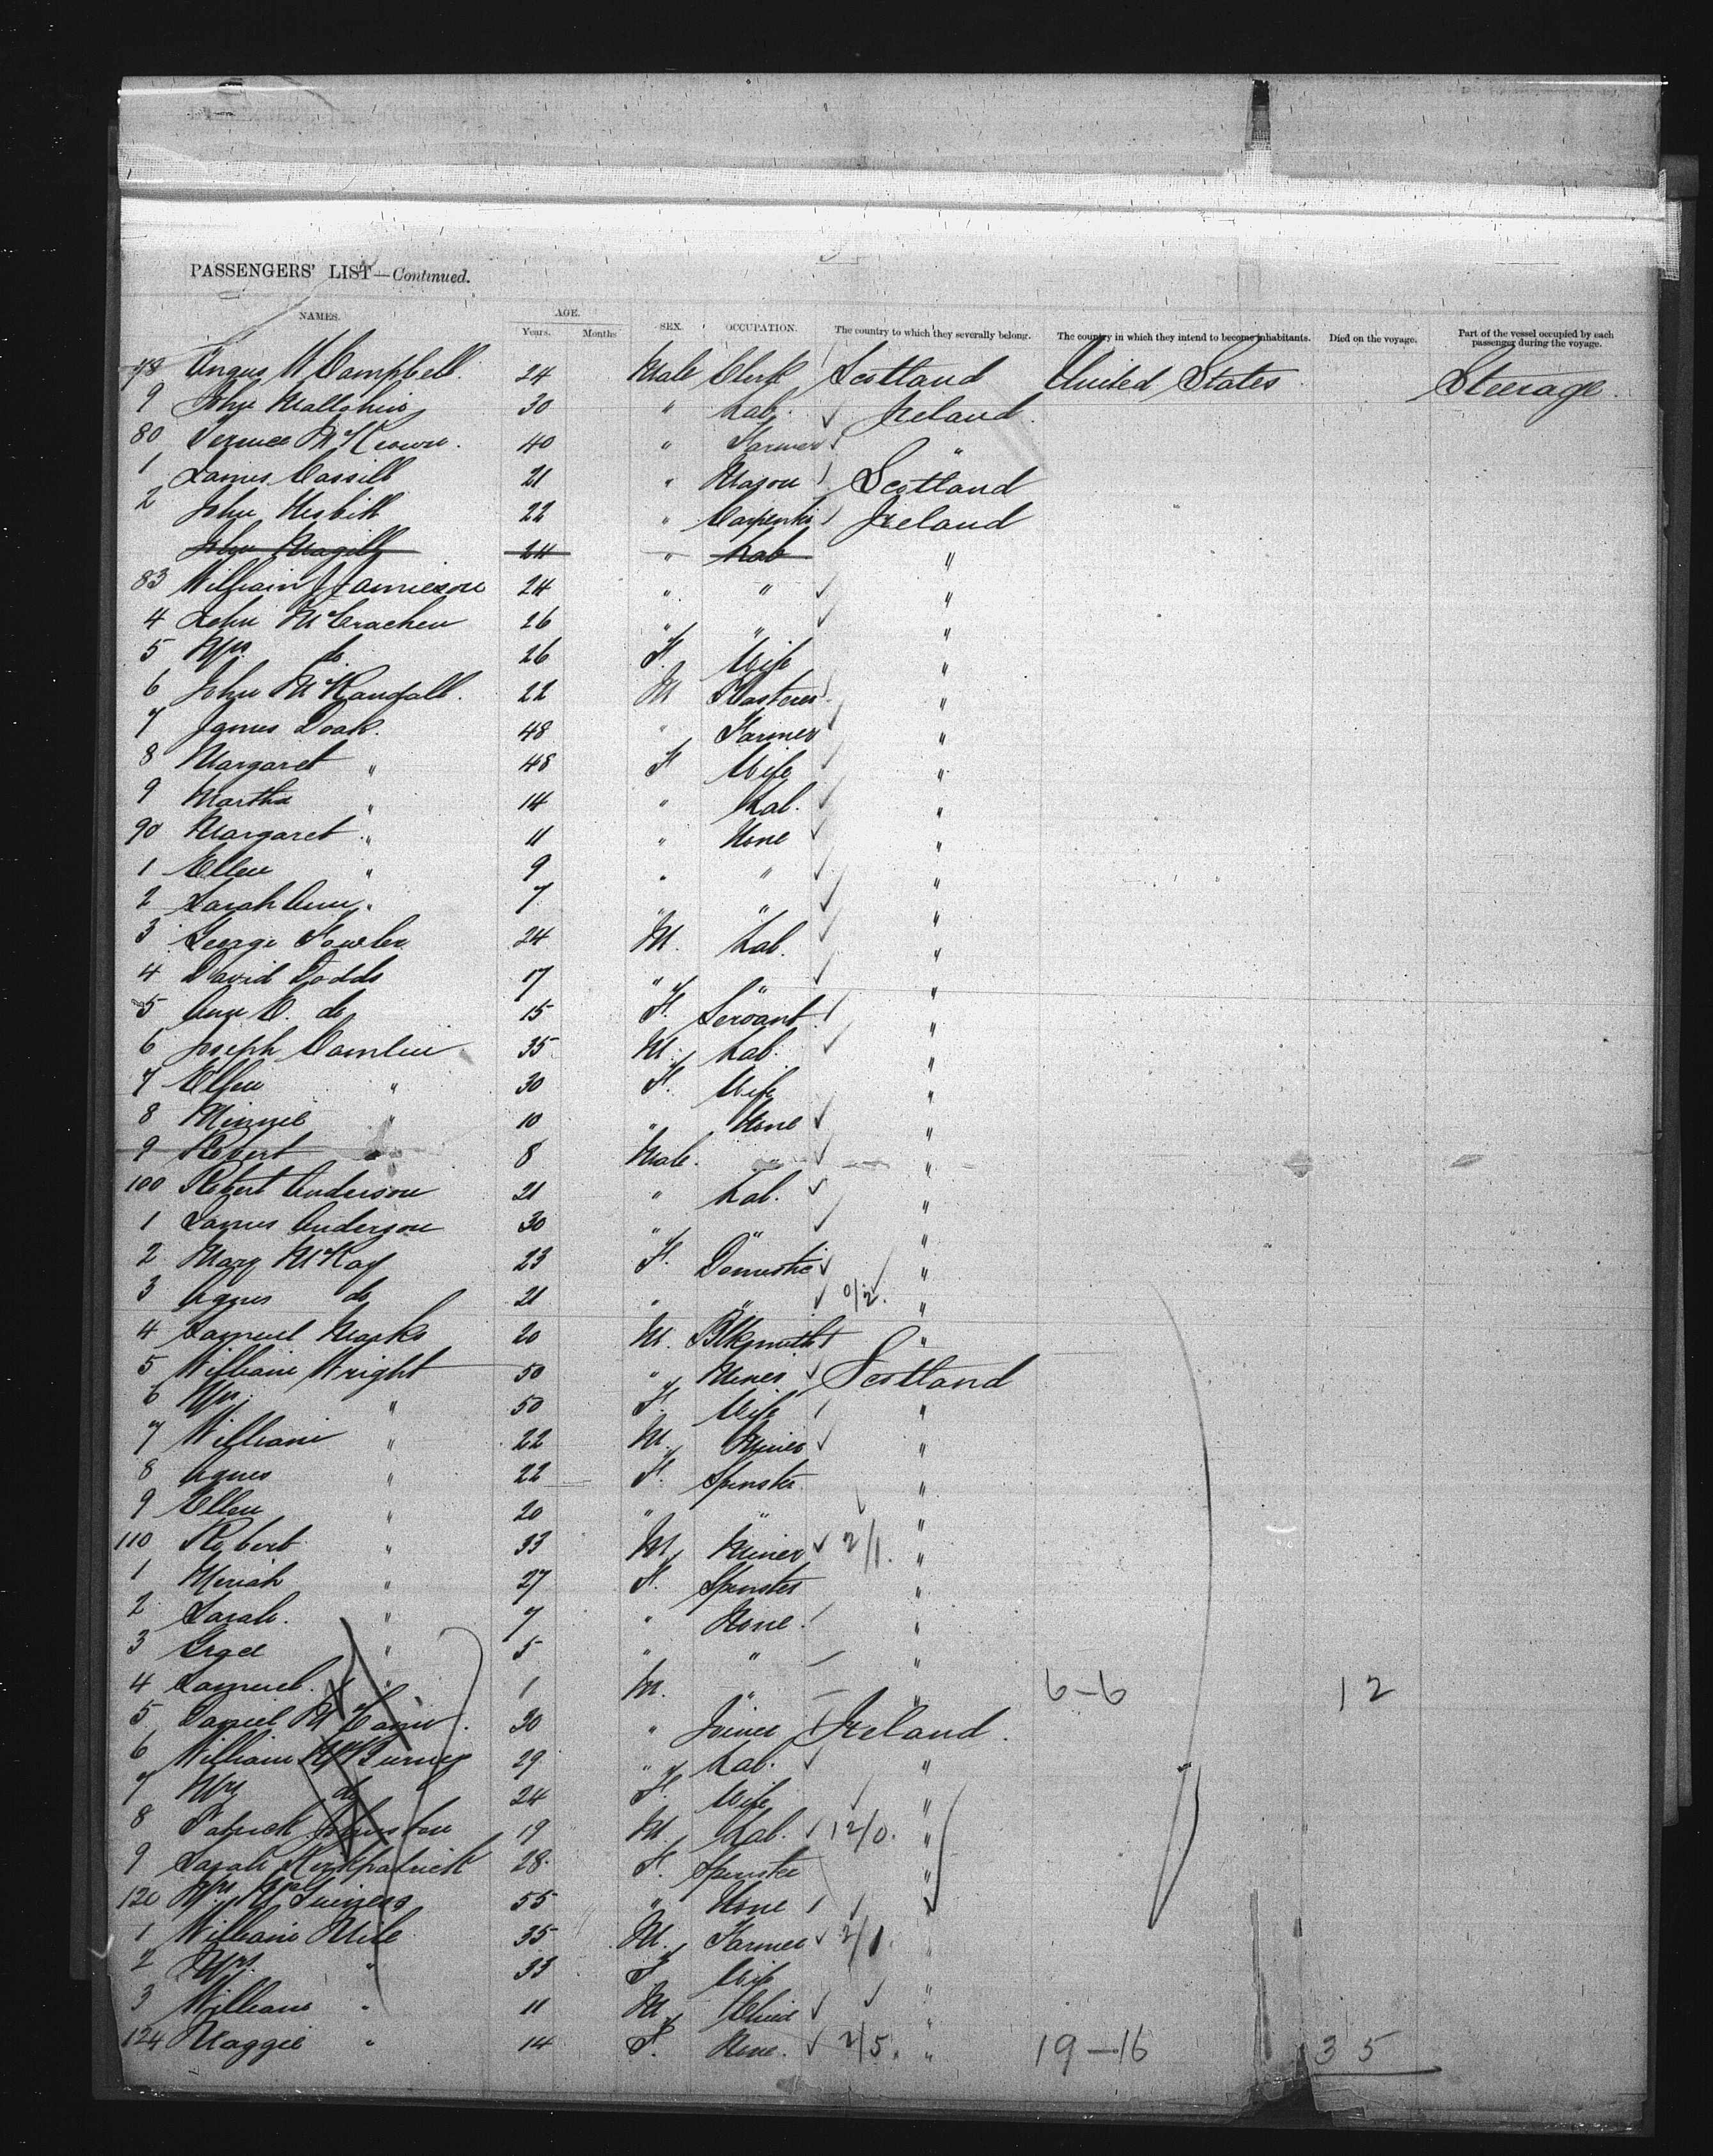 PASSENGERS' LIST—Continued.
NAMES. AGE. Years. Months SEX. OCCUPATION. The country to which they severally belong. The country in which they intend to become inhabitants. Died on the voyage. Part of the vessel occupied by each passenger during the voyage.
78 Angus W Campbell 24 Male Clerk Scotland United States Steerage.
9 John 30 " Lab. Ireland
80 McKeown. 40 " Farmer "
1 James Cassill 21 " Mason Scotland
2 John Nesbitt 22 " Carpenter Ireland
John Magill 24 " Lab "
83 William J Jamieson 24 " " "
4 John McCracken 26 " " "
5 Mrs do 26 F. Wife "
6 John 22 M Plasterer "
7 James Doak. 48 " Farmer "
8 Margaret " 48 F Wife "
9 Martha " 14 " Lab. "
90 Margaret " 11 " None "
1 Ellen " 9 " " "
2 Sarah Ann " 7 " " "
3 George Fowler 24 M. Lab. "
4 David Dodds 17 " " "
5 Ann E. do 15 F. Servant "
6 Joseph 35 M. Lab. "
7 Ellen " 30 F. Wife "
8 Minnie " 10 " None "
9 Robert " 8 Male. " "
100 Robert Anderson 21 " Lab. "
1 James Anderson 30 " " "
2 Mary McKay 23 F. Domestic "
3 Agnes do 21 " " 0/2. "
4 Samuel Marks 20 M. Blksmith "
5 William Wright 50 " Miner Scotland
6 Mrs " 50 F. Wife "
7 William " 22 M. Miner "
8 Agnes " 22 F. Spinster "
9 Ellen " 20 " " "
110 Robert " 33 M. Miner 2/1. "
1 Meriah " 27 F. Spinster "
2 Sarah. " 7 " None "
3 Grace " 5 " " "
4 Samuel. " 1 M. " " 6-6 12
5 Daniel 30 " Joiner Ireland.
6 William 29 " Lab. "
7 Mrs do 24 F. Wife "
8 Patrick Johnston 19 M. Lab. 12/0. "
9 Sarah Kirkpatrick 28. F. Spinster "
120 Mrs 55 " None "
1 William 35 M. Farmer 2/1. "
2 Mrs. " 33 F Wife "
3 William " 11 M. Child "
124 Maggie " 14 F. None. 2/5. " 19-16 35